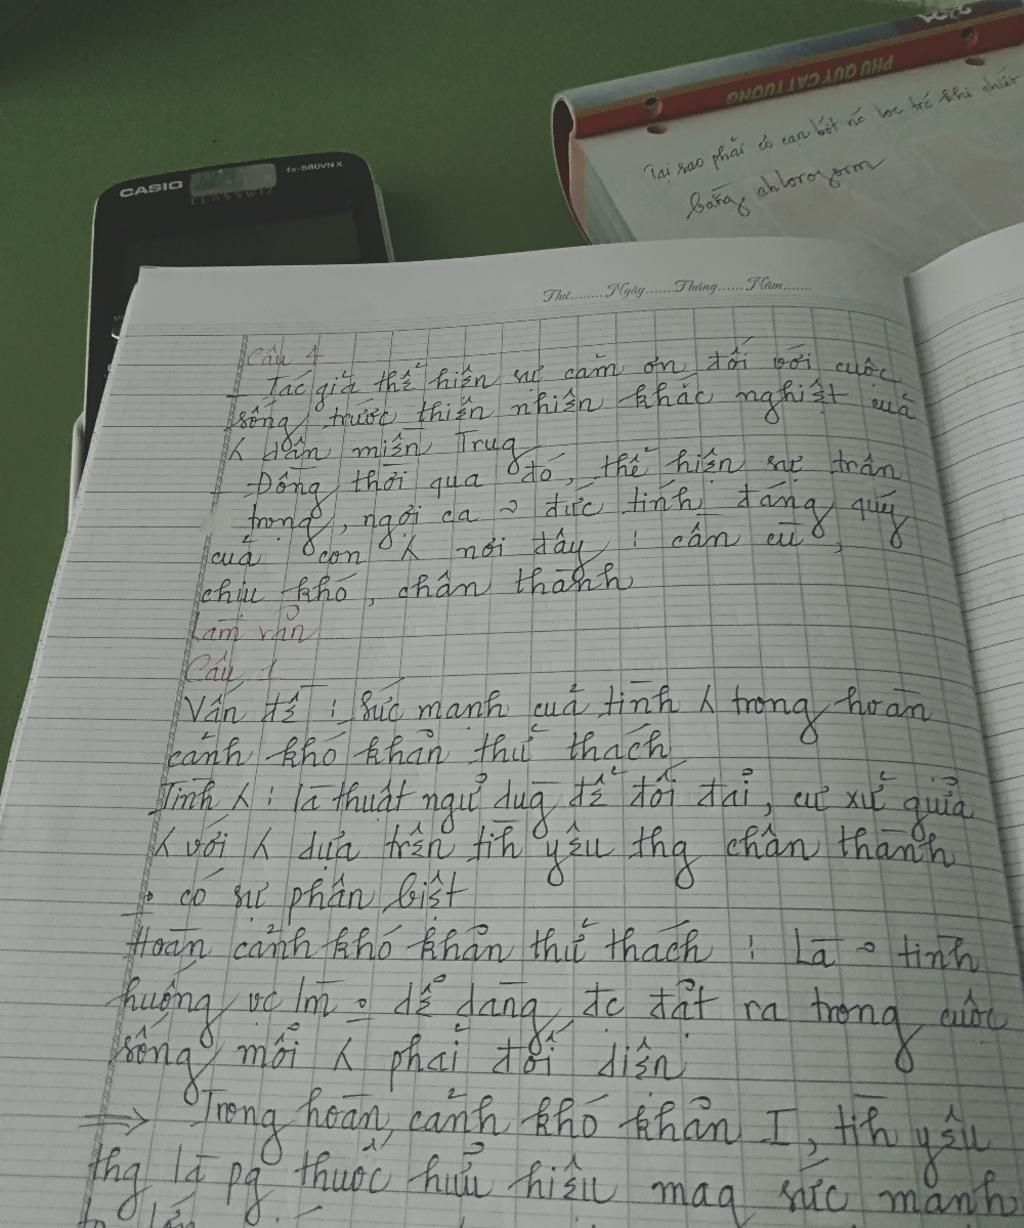 PHU QUY CAT TUONG
Tại sao phải có cạn bột nc lọc trc khi chiết
bằng chloroform
CASIO
fx-580VN X
CLASSWIZ
Thứ........Ngày.......Tháng.......Năm.......
Câu 4
- Tác giả thể hiện sự cảm ơn đối với cuộc
sống, trước thiên nhiên khắc nghiệt của
dân miền Trug
- Đồng thời qua đó, thể hiện sự trân
trọng, ngợi ca đức tính đáng quý
của con nơi đây : cần cù,
chịu khó, chân thành
Làm văn
Câu 1
Vấn đề : Sức mạnh của tình trong hoàn
cảnh khó khăn thử thách
Tình : là thuật ngữ dug để đối đãi, cư xử giữa
với dựa trên tìh yêu thg chân thành
có sự phân biệt
Hoàn cảnh khó khăn thử thách : Là tình
huống, vc lm dễ dàng, đc đặt ra trong cuộc
sống mỗi phải đối diện
⇒ Trong hoàn cảnh khó khăn I, tìh yêu
thg là pg thuốc hữu hiệu mag sức mạnh